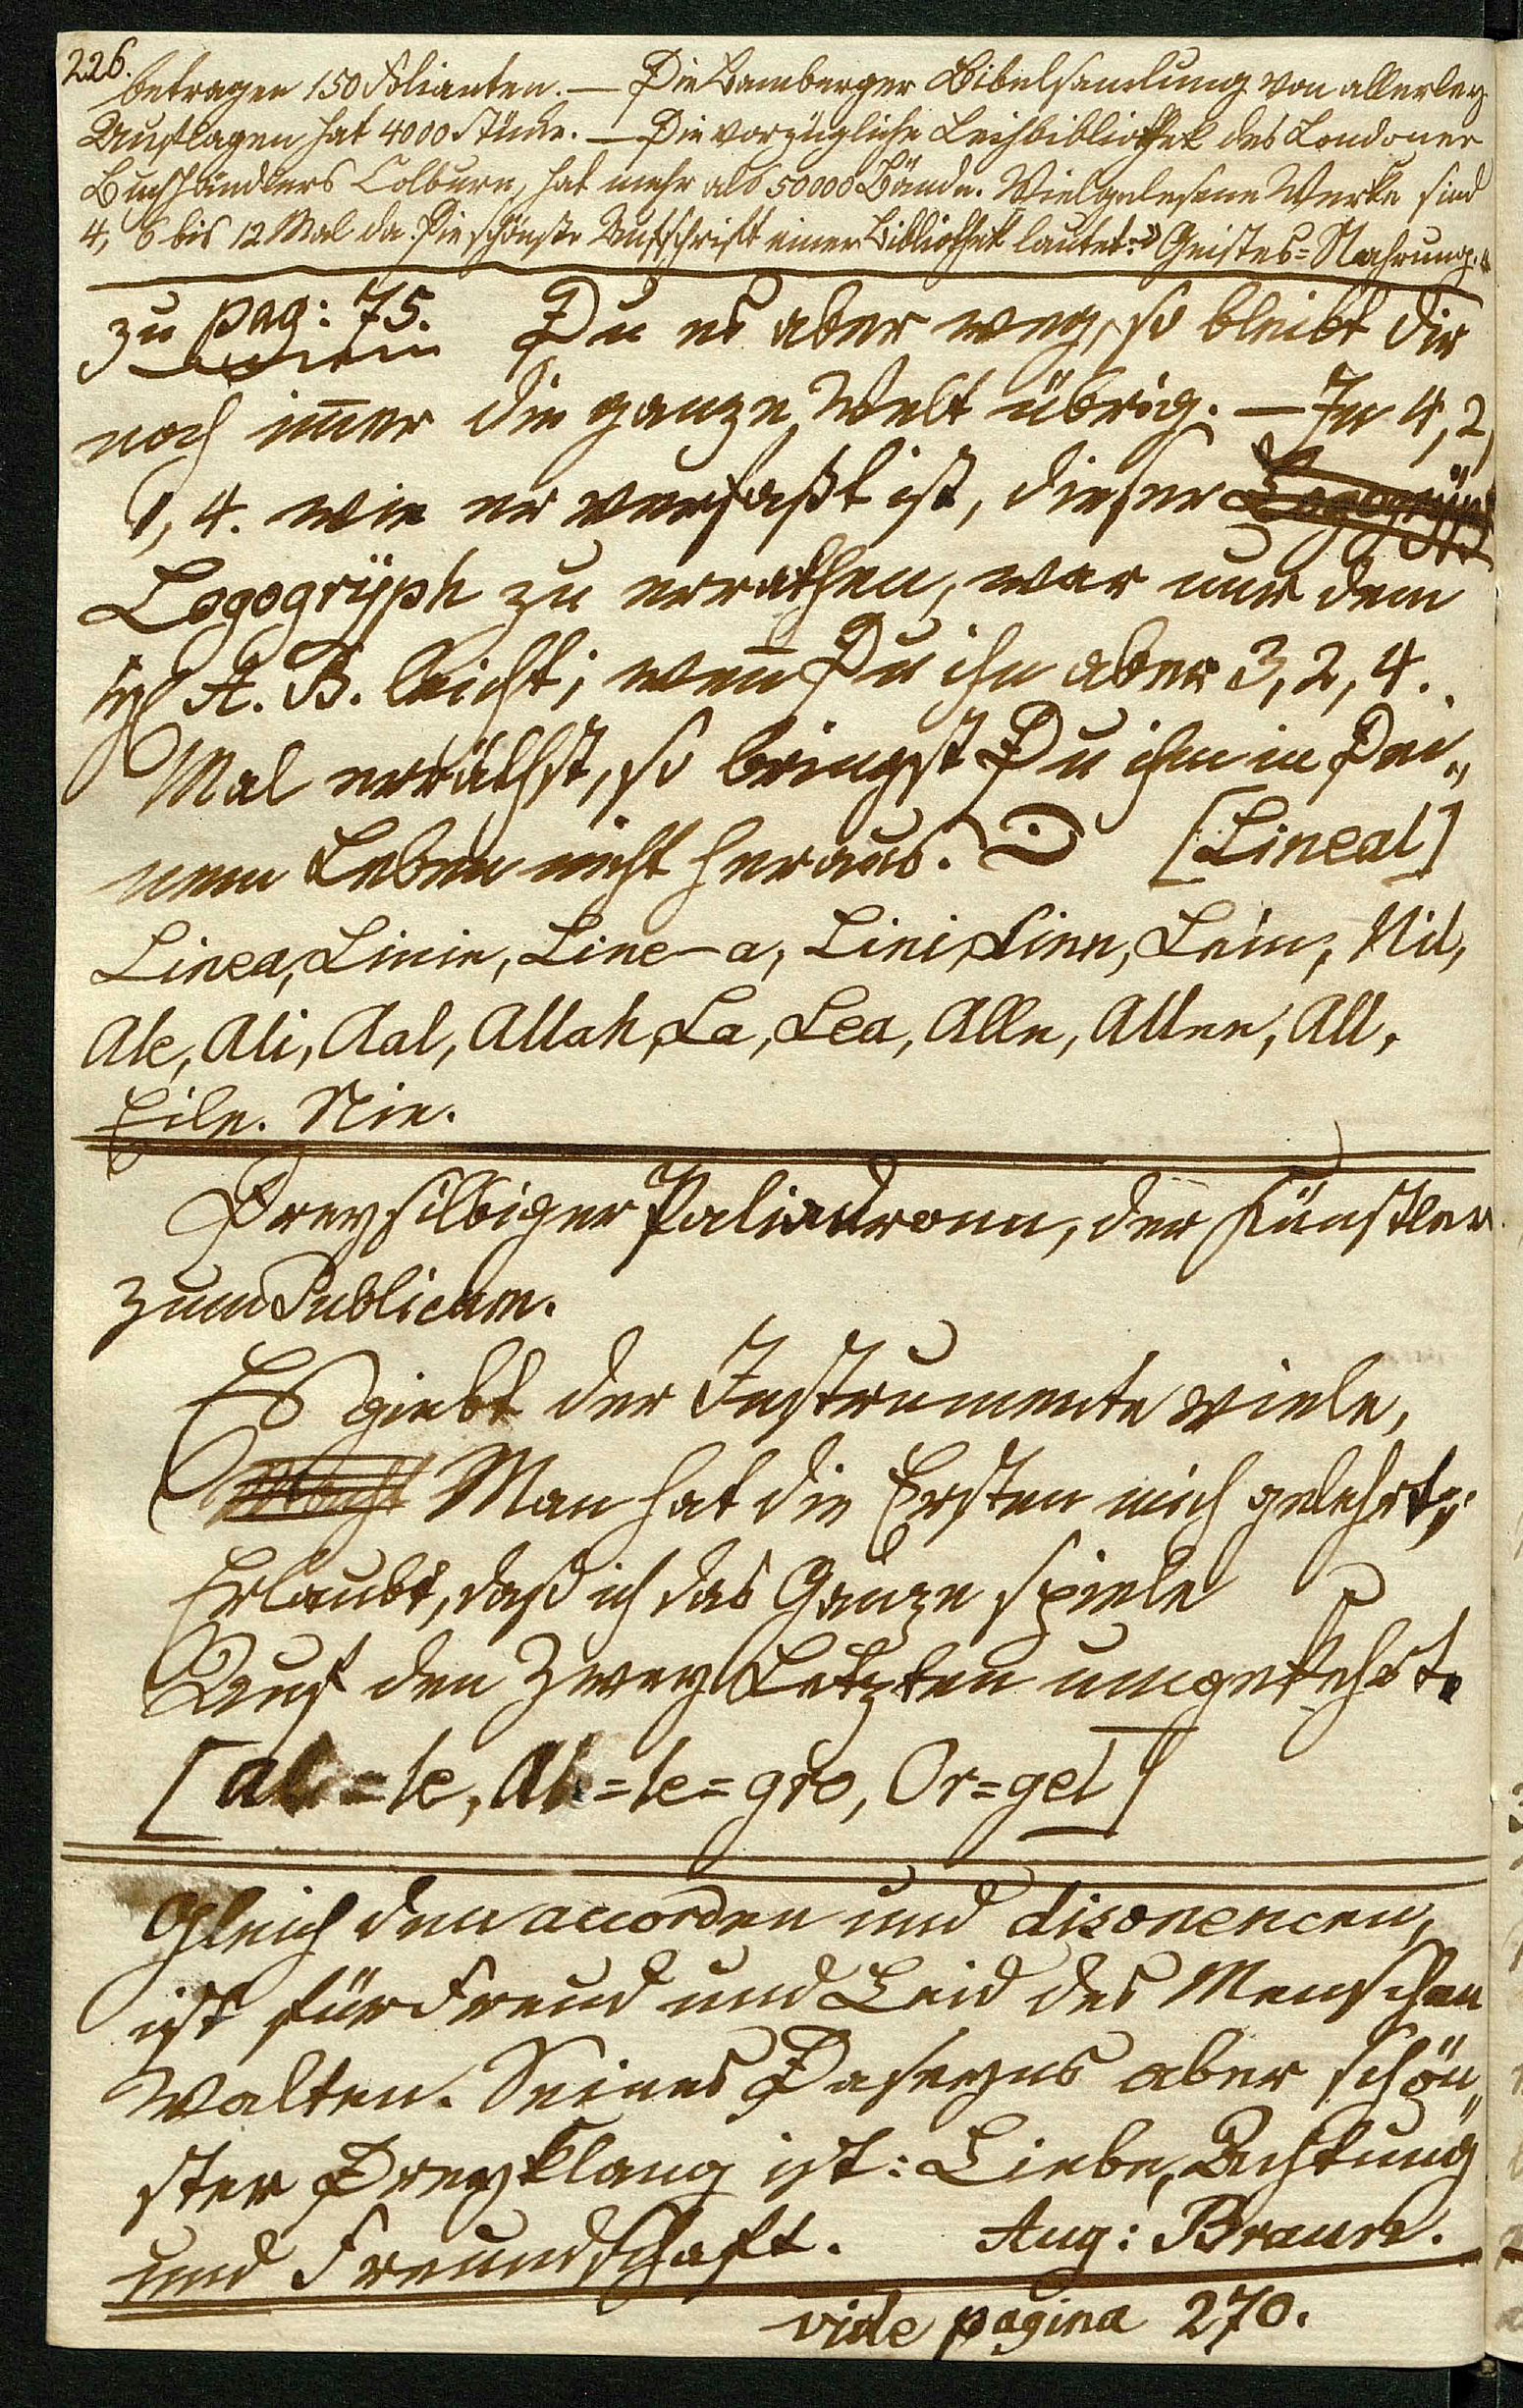 226.
betragen 150 Folianten. — Die Bamberger Bibelsamlung von allerley
Auflagen hat 4000 Stücke. — Die vorzügliche Leihbibliothek des Londoner
Buchhändlers Colburn, hat mehr als 50000 Bände. Vielgelesene Werke sind
4, 6 bis 12 Mal da. Die schönste Aufschrift einer Bibliothek lautet: » Geistes=Nahrung. «
zu pag: 75. Du es aber weg, so bleibt dir
noch im̄er die ganze Welt übrig. — In 4, 2,
1, 4. wie er verfaßt ist, dieser Logogrÿph
Logogrÿph zu errathen, war nur dem
A. B. leicht; wen̄ Du ihn aber 3, 2, 4.
Mal erräthst, so bringst Du ihn in Dei„
nem Leben nicht heraus. [Lineal]
Linea, Linie, Line-a, Lini, Linn, Lein, Nil,
Ale, Ali, Aal, Allah, La, Lea, Alle, Allee, All,
Eile. Nie.
Dreysilbiger Palindrom, der Künstler
zum Publicum.
Es giebt der Instrumente viele,
Man hat die Ersten mich gelehrt;
Erlaubt, daß ich das Ganze spiele
Auf den zwey Letzten umgekehrt.
[al=le, Al=le=gro, Or=gel]
Gleich den accorden und disonencen,
ist für Freud und Leid des Menschen
Walten. Seines Daseyns aber schön„
ster Dreyklang ist: Liebe, Achtung
und Freundschaft. Aug: Braun.
vide pagina 270.